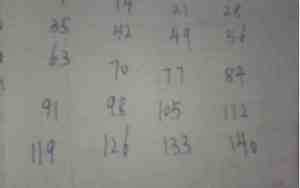 14 21 28
35 42 49 56
63 70 77 84
91 98 105 112
119 126 133 140